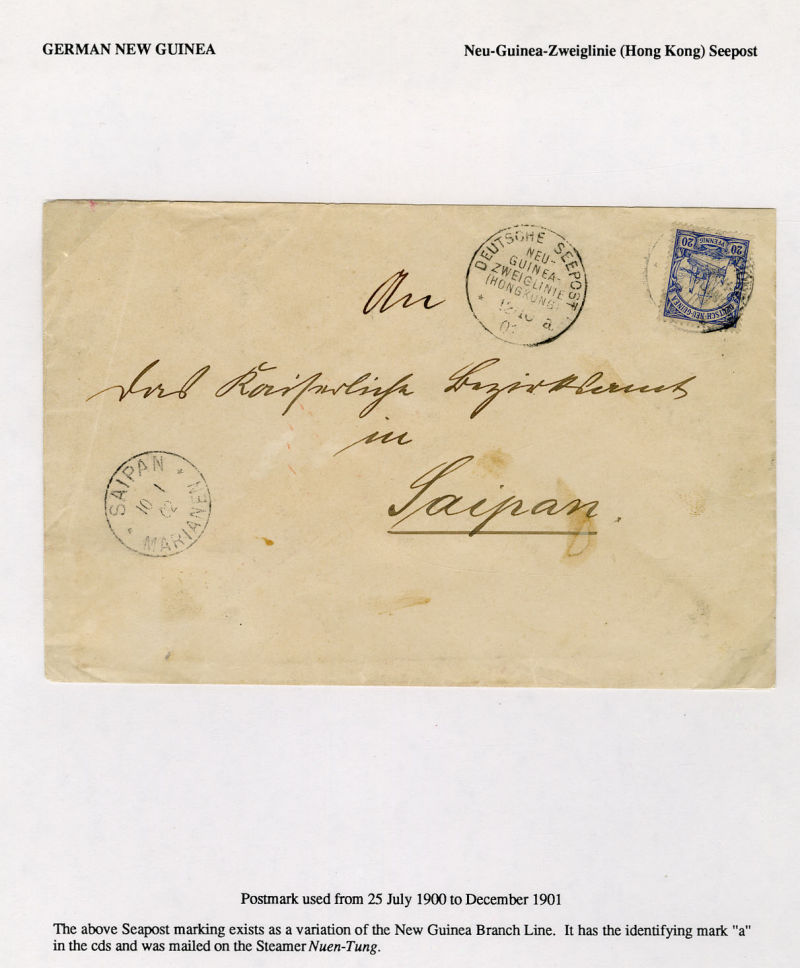 GERMAN NEW GUINEA
Neu-Guinea-Zweiglinie (Hong Kong) Seepost
DEUTSCHE SEEPOST
NEU-
GUINEA-
ZWEIGLINIE
(HONGKONG)
a.
20 20
PFENNIG
DEUTSCH-NEU-GUINEA
An
Das Kaiserliche Bezirksamt
in
Saipan.
SAIPAN
10 1
02
MARIANEN
Postmark used from 25 July 1900 to December 1901
The above Seapost marking exists as a variation of the New Guinea Branch Line. It has the identifying mark "a"
in the cds and was mailed on the Steamer Nuen-Tung.